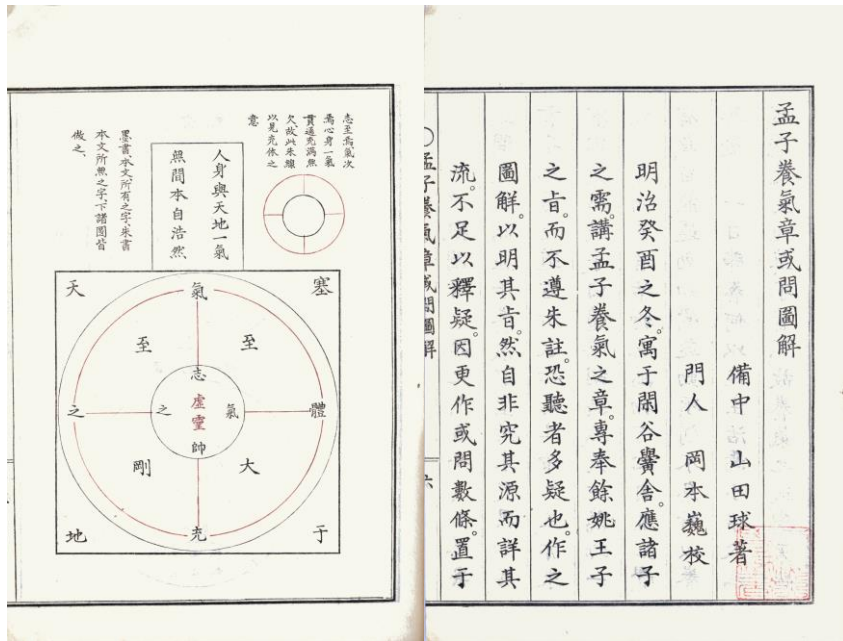 孟子養氣章或問圖解
備中 山田球著
門人 岡本巍校
明治癸酉之冬。寓于閑谷黌舍。應諸子
之需。講孟子養氣之章。專奉餘姚王子
之旨。而不遵朱註。恐聽者多疑也。作之
圖解。以明其旨。然自非究其源而詳其
流。不足以釋疑。因更作或問數條。置于
○孟子養氣章或問圖解
六
志至焉、氣次
焉、心身一氣
貫通充滿無
欠、故以朱線
以見充体之
意
人身與天地一氣
無間本自浩然
墨書、本文所有之字、朱書
本文所無之字、下諸圖皆
倣之、
塞
于
天
之
地
氣
體
充
至
大
至
剛
志
氣
之
帥
虛靈